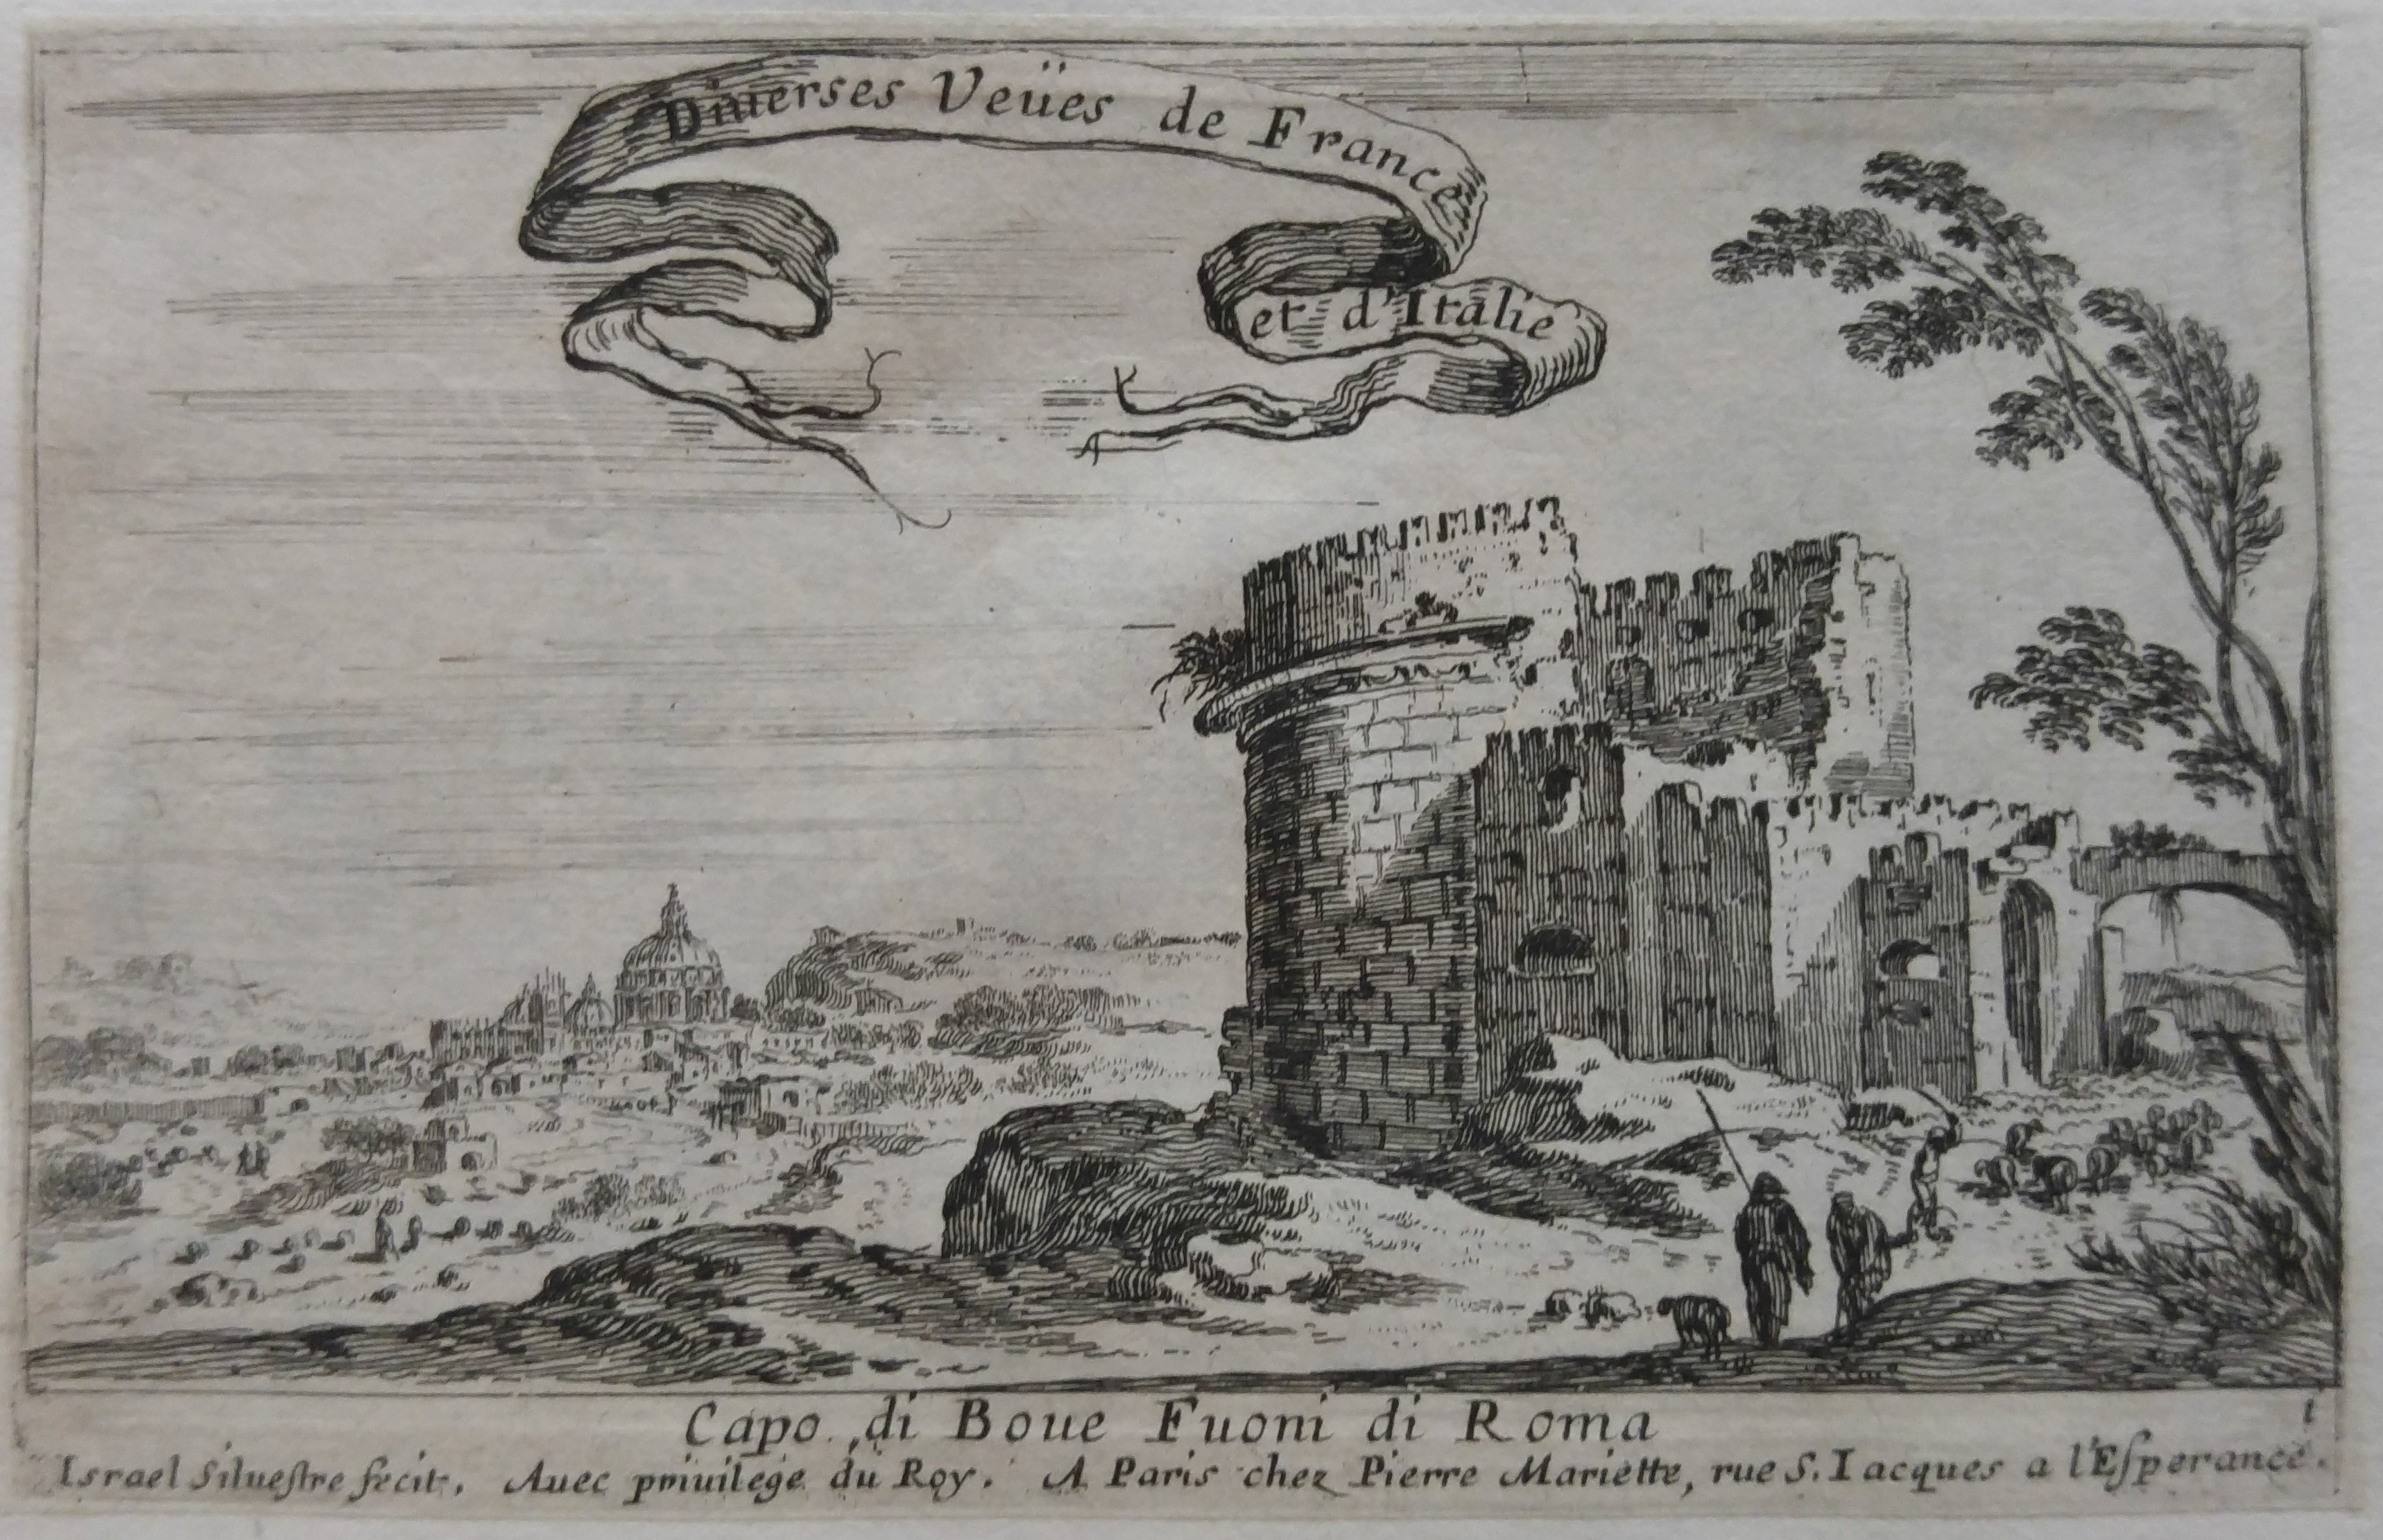 Diuerses Veües de France
et d'Italie
Capo di Boue Fuoni di Roma
1
Israel Siluestre fecit, Auec priuilege du Roy. A Paris chez Pierre Mariette, rue S. Iacques a l'Esperance.